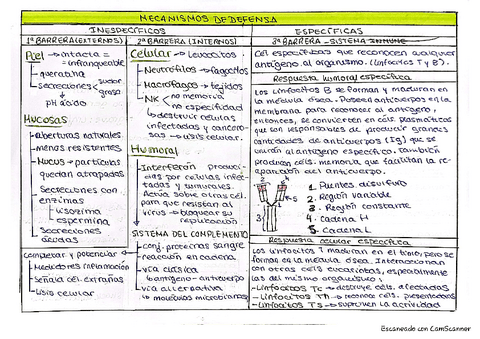 MECANISMOS DE DEFENSA
INESPECÍFICOS
ESPECÍFICAS
1ª BARRERA (EXTERNOS)
Piel → intacta =
= infranqueable
queratina
secreciones
sudor
grasa
pH ácido
Mucosas
aberturas naturales
menos resistentes
Mucus → partículas
quedan atrapadas
Secreciones con
enzimas
lisozima
espermina
Secreciones
ácidas
completar y potenciar
Mediadores inflamación
Señala cél. extrañas
Lisis celular
2ª BARRERA (INTERNOS)
Celular → Leucocitos
Neutrófilos → fagocitos
Macrófagos → tejidos
NK → no memoria
no especificidad
destruir celulas
infectadas y cancero-
sas → lisis celular.
Humoral
Interferón produci-
das por celulas infec-
tadas y tumorales.
Actúa sobre otras cel.
para que resistan al
virus → bloquear su
replicación
SISTEMA DEL COMPLEMENTO
conj. proteínas sangre
reacción en cadena
vía clásica
antígeno - anticuerpo
vía alternativa
moléculas microbianas
3ª BARRERA - SISTEMA INMUNE
Cél específicas que reconocen cualquier
antígeno al organismo. (Linfocitos T y B).
Respuesta humoral específica
Los linfocitos B se forman y maduran en
la médula ósea. Poseen anticuerpos en la
membrana para reconocer al antígeno,
entonces, se convierten en céls plasmáticas
que son responsables de producir grandes
cantidades de anticuerpos (Ig) que se
unirán al antígeno específico. También
producen céls. memoria que facilitan la re-
aparición del anticuerpo
1. Puentes disulfuro
2. Región variable
3. Región constante
4. Cadena H
5. Cadena L
Respuesta celular específica
Los linfocitos T maduran en el timo, pero se
forman en la médula ósea. Interaccionan
con otras cels eucariotas, especialmente
las del mismo organismo:
- Linfocitos Tc → destruye céls. afectadas
- Linfocitos Th → reconoce cels. presentadoras
- Linfocitos Ts → suprimen la actividad
Escaneado con CamScanner